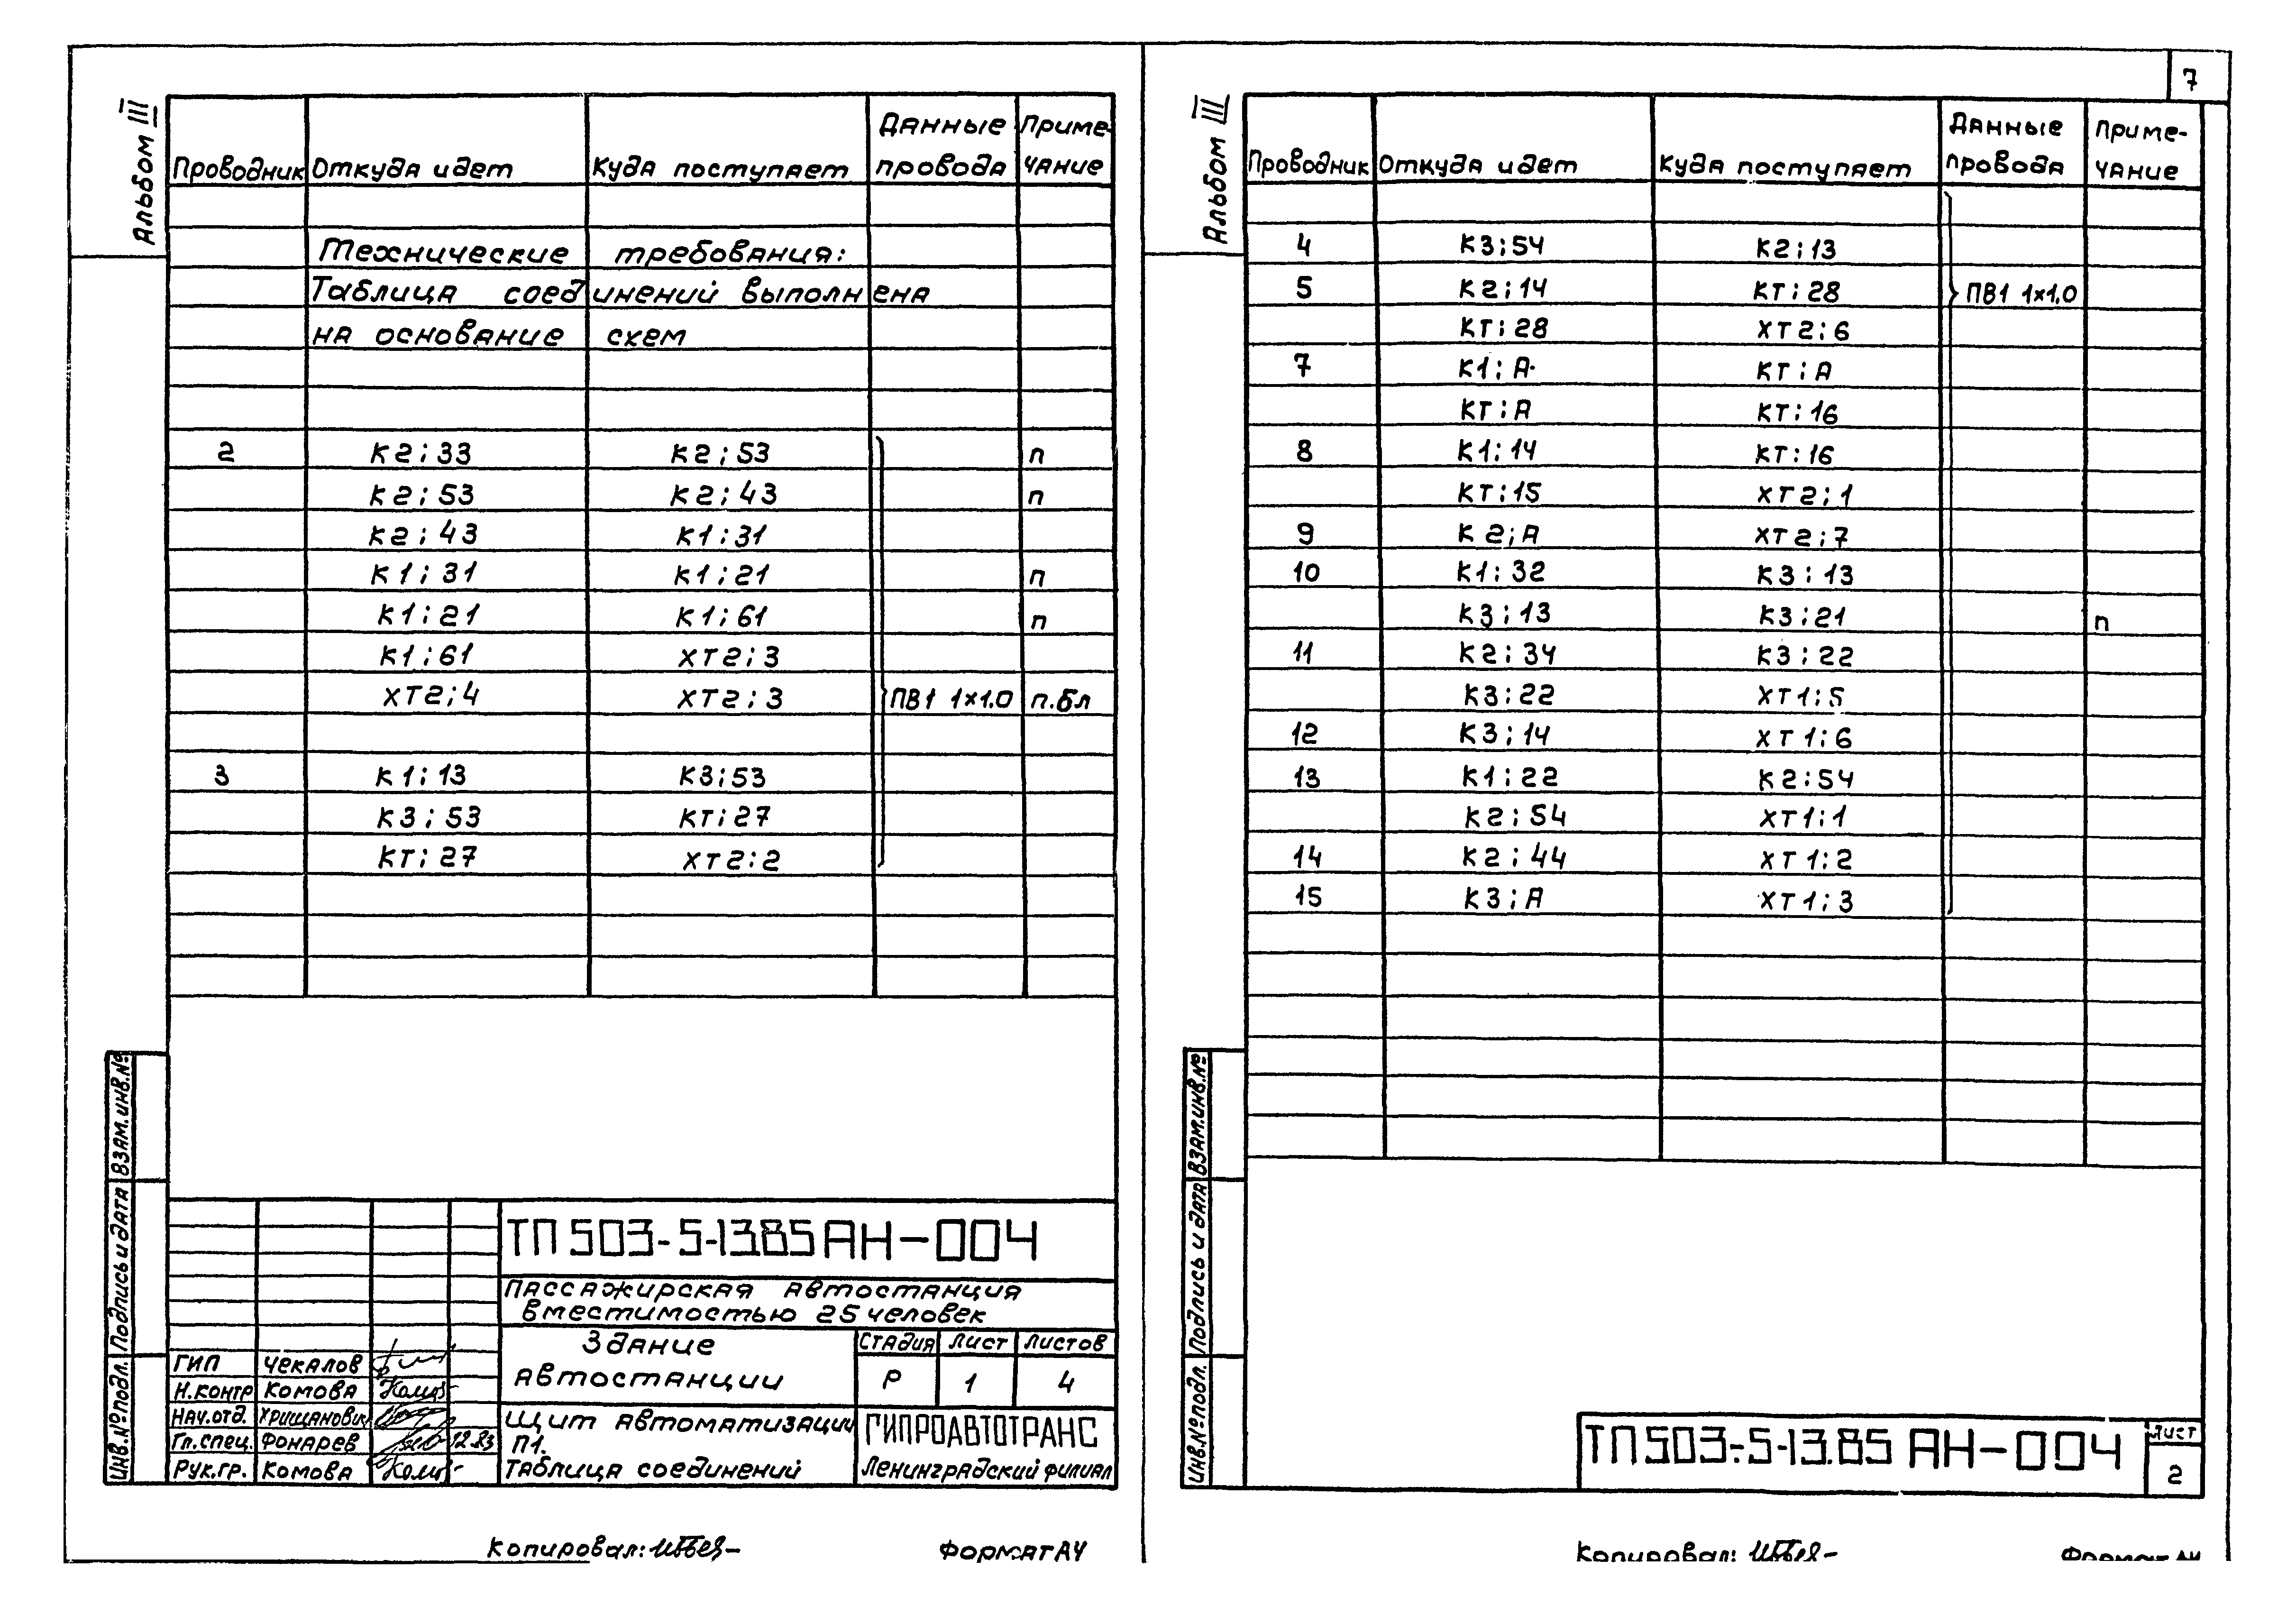 7
Альбом III
Проводник Откуда идет Куда поступает Данные провода Приме-чание
Технические требования:
Таблица соединений выполнена
на основание схем
2 К2:33 К2:53 п
К2:53 К2:43 п
К2:43 К1:31
К1:31 К1:21 п
К1:21 К1:61 п
К1:61 ХТ2:3
ХТ2:4 ХТ2:3 ПВ1 1х1.0 п.бл
3 К1:13 К3:53
К3:53 КТ:27
КТ:27 ХТ2:2
ТП 503-5-13.85 АН-004
Пассажирская автостанция
вместимостью 25 человек
Здание
автостанции
Стадия Лист Листов
Р 1 4
Щит автоматизации
П1.
Таблица соединений
ГИПРОАВТОТРАНС
Ленинградский филиал
ГИП Чекалов
Н.контр Комова
Нач.отд. Хрищанович
Гл.спец. Фонарев 12.83
Рук.гр. Комова
Инв.№подл. Подпись и дата Взам.инв.№
Копировал:
Формат А4
Альбом III
Проводник Откуда идет Куда поступает Данные провода Приме-чание
4 К3:54 К2:13
5 К2:14 КТ:28 ПВ1 1х1.0
КТ:28 ХТ2:6
7 К1:А КТ:А
КТ:А КТ:16
8 К1:14 КТ:16
КТ:15 ХТ2:1
9 К2:А ХТ2:7
10 К1:32 К3:13
К3:13 К3:21 п
11 К2:34 К3:22
К3:22 ХТ1:5
12 К3:14 ХТ1:6
13 К1:22 К2:54
К2:54 ХТ1:1
14 К2:44 ХТ1:2
15 К3:А ХТ1:3
Инв.№подл. Подпись и дата Взам.инв.№
ТП 503-5-13.85 АН-004
Лист
2
Копировал:
Формат А4